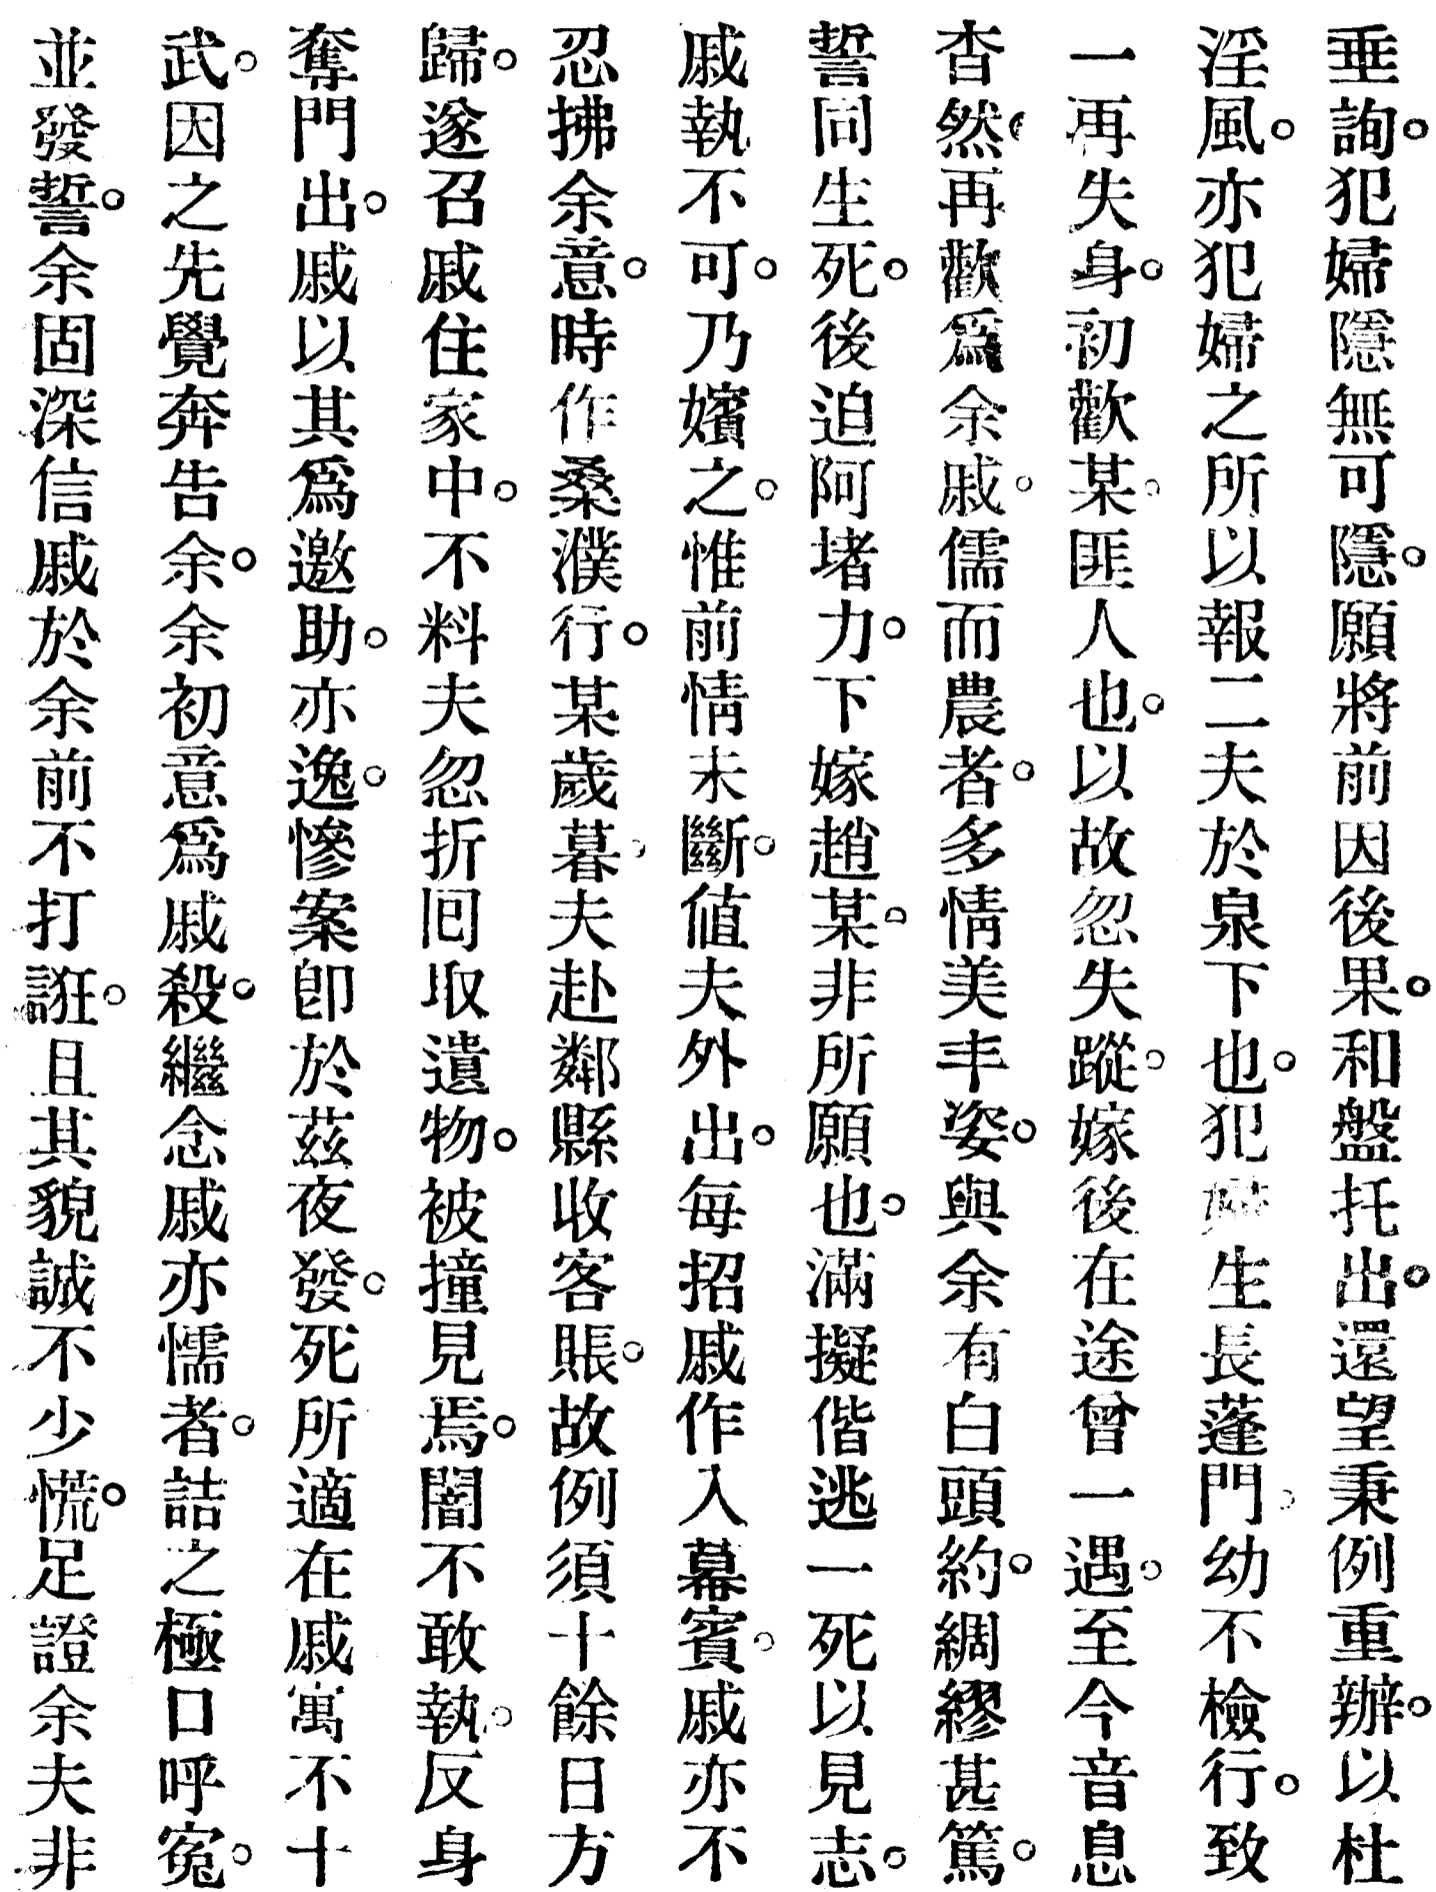 垂詢。犯婦隱無可隱。願將前因後果。和盤托出。還望秉例重辦。以杜
淫風。亦犯婦之所以報二夫於泉下也。犯婦生長蓬門。幼不檢行。致
一再失身。初歡某。匪人也。以故忽失蹤。嫁後在途曾一遇。至今音息
杳然。再歡爲余戚。儒而農者。多情美丰姿。與余有白頭約。綢繆甚篤。
誓同生死。後迫阿堵力。下嫁趙某。非所願也。滿擬偕逃一死以見志。
戚執不可。乃嬪之。惟前情未斷。値夫外出。每招戚作入幕賓。戚亦不
忍拂余意。時作桑濮行。某歲暮。夫赴鄰縣收客賬。故例須十餘日方
歸。遂召戚住家中。不料夫忽折囘取遺物。被撞見焉。闇不敢執。反身
奪門出。戚以其爲邀助。亦逸。慘案卽於茲夜發。死所適在戚寓不十
武。因之先覺奔告余。余初意爲戚殺。繼念戚亦懦者。詰之極口呼寃。
並發誓。余固深信戚於余前不打誑。且其貌誠不少慌。足證余夫非